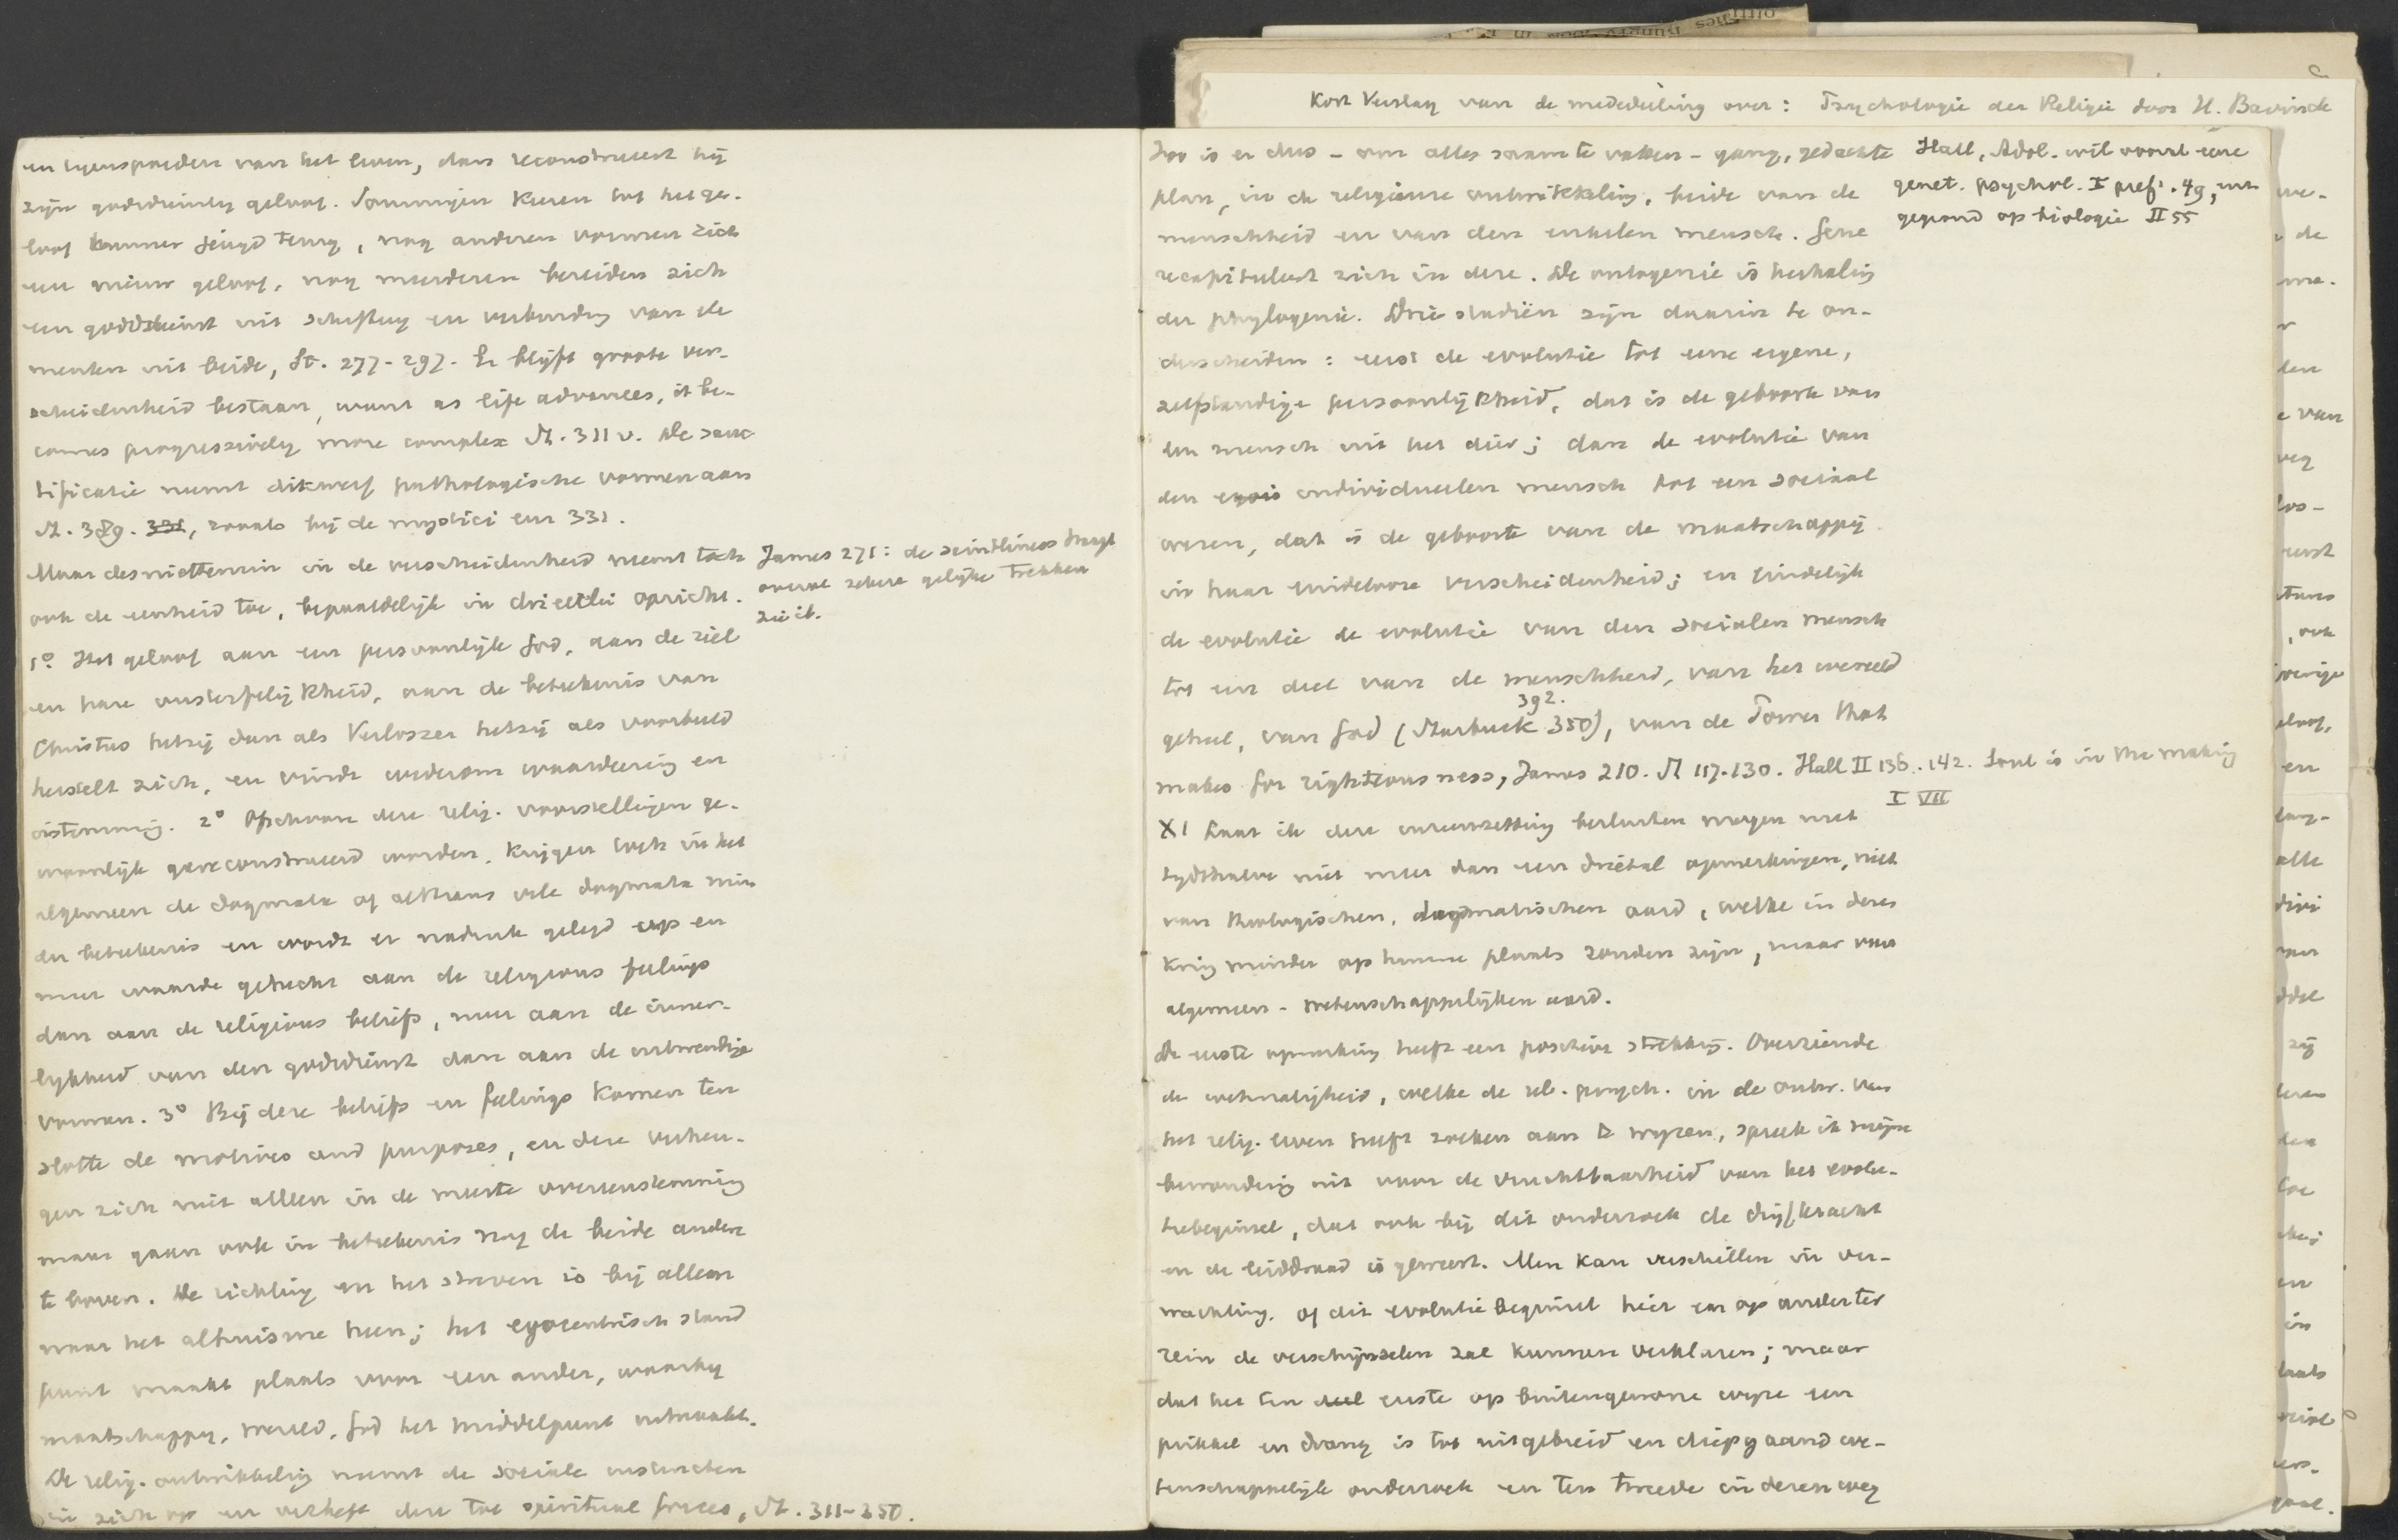 en tegenspoeden van het leven, dan reconstrueert hij
zijn godsdienstig geloof. Sommigen keeren tot het ge-
loof hunner jeugd terug, nog anderen vormen zich
een nieuw geloof, nog meerderen bereiden zich
een godsdienst uit schifting en verbinding van ele
menten uit beide, St. 277-297. Er blijft groote ver-
scheidenheid bestaan, want as life advances, it be-
comes progressively more complex St. 311 v. De sanc
tificatie neemt dikwerf pathologische vormen aan
St. 389. 331, zooals bij de mystici enz 331.
Maar desniettemin in de verscheidenheid neemt toch
ook de eenheid toe, bepaaldelijk in drieërlei opzicht.
James 271: de saintliness draagt
overal zekere gelijke trekken
zie ib.
1° Het geloof aan een persoonlijk God, aan de ziel
en hare onsterfelijkheid, aan de beteekenis van
Christus hetzij dan als Verlosser hetzij als voorbeeld
herstelt zich, en vindt wederom waardeering en
instemming. 2° Ofschoon deze relig. voorstellingen ge-
woonlijk gereconstrueerd worden, krijgen toch in het
algemeen de dogmata of althans vele dogmata min
der beteekenis en wordt er nadruk gelegd op en
meer waarde gehecht aan de religious feelings
dan aan de religious beliefs, meer aan de inner-
lijkheid van den godsdienst dan aan de uitwendige
vormen. 3° Bij deze beliefs en feelings komen ten
slotte de motives and purposes, en deze verheu-
gen zich niet alleen in de meeste overeenstemming
maar gaan ook in beteekenis nog de beide andere
te boven. De richting en het streven is bij allen
naar het altruisme heen; het egocentrisch stand
punt maakt plaats voor een ander, waarbij
maatschappij, wereld, God het middelpunt uitmaakt.
De relig. ontwikkeling neemt de sociale instincten
in zich op en verheft deze tot spiritual forces, St. 311-350.
Kort Verslag van de mededeeling over: Psychologie der Religie door H. Bavinck
Zoo is er dus - om alles saam te vatten - gang, gedachte
plan, in de religieuse ontwikkeling, beide van de
menschheid en van den enkelen mensch. Gene
recapituleert zich in deze. De ontogenie is herhaling
der phylogenie. Drie stadiën zijn daarin te on-
derscheiden: eerst de evolutie tot eene eigene,
zelfstandige persoonlijkheid, dat is de geboorte van
den mensch uit het dier; dan de evolutie van
den individueelen mensch tot een sociaal
wezen, dat is de geboorte van de maatschappij
in haar eindelooze verscheidenheid; en eindelijk
de evolutie de evolutie van den socialen mensch
tot een deel van de menschheid, van het wereld
392.
geheel, van God (Starbuck 350), van de Power that
makes for righteousness, James 210. St 117-130. Hall II 136. 142. Soul is in the making
I VII
Hall, Adol. wil vooral eene
genet. psychol. I pref. 49,
gegrond op biologie II 55
XI Laat ik deze uiteenzetting besluiten mogen met
tijdshalve niet meer dan een drietal opmerkingen, niet
van theologischen, dogmatischen aard, welke in dezen
kring minder op hunne plaats zouden zijn, maar van
algemeen-wetenschappelijken aard.
De eerste opmerking heeft een positieve strekking. Overziende
de wetmatigheid, welke de rel. psych. in de ontw. van
het relig. leven heeft zoeken aan te wijzen, spreek ik mijne
bewondering uit voor de vruchtbaarheid van het evolu-
tiebeginsel, dat ook bij dit onderzoek de drijfkracht
en de leiddraad is geweest. Men kan verschillen in ver-
wachting, of dit evolutiebeginsel hier en op ander ter
rein de verschijnselen zal kunnen verklaren; maar
dat het ten deel eerste op buitengewone wijze een
prikkel en drang is tot uitgebreid en diepgaand we-
tenschappelijk onderzoek en ten tweede in dezen weg